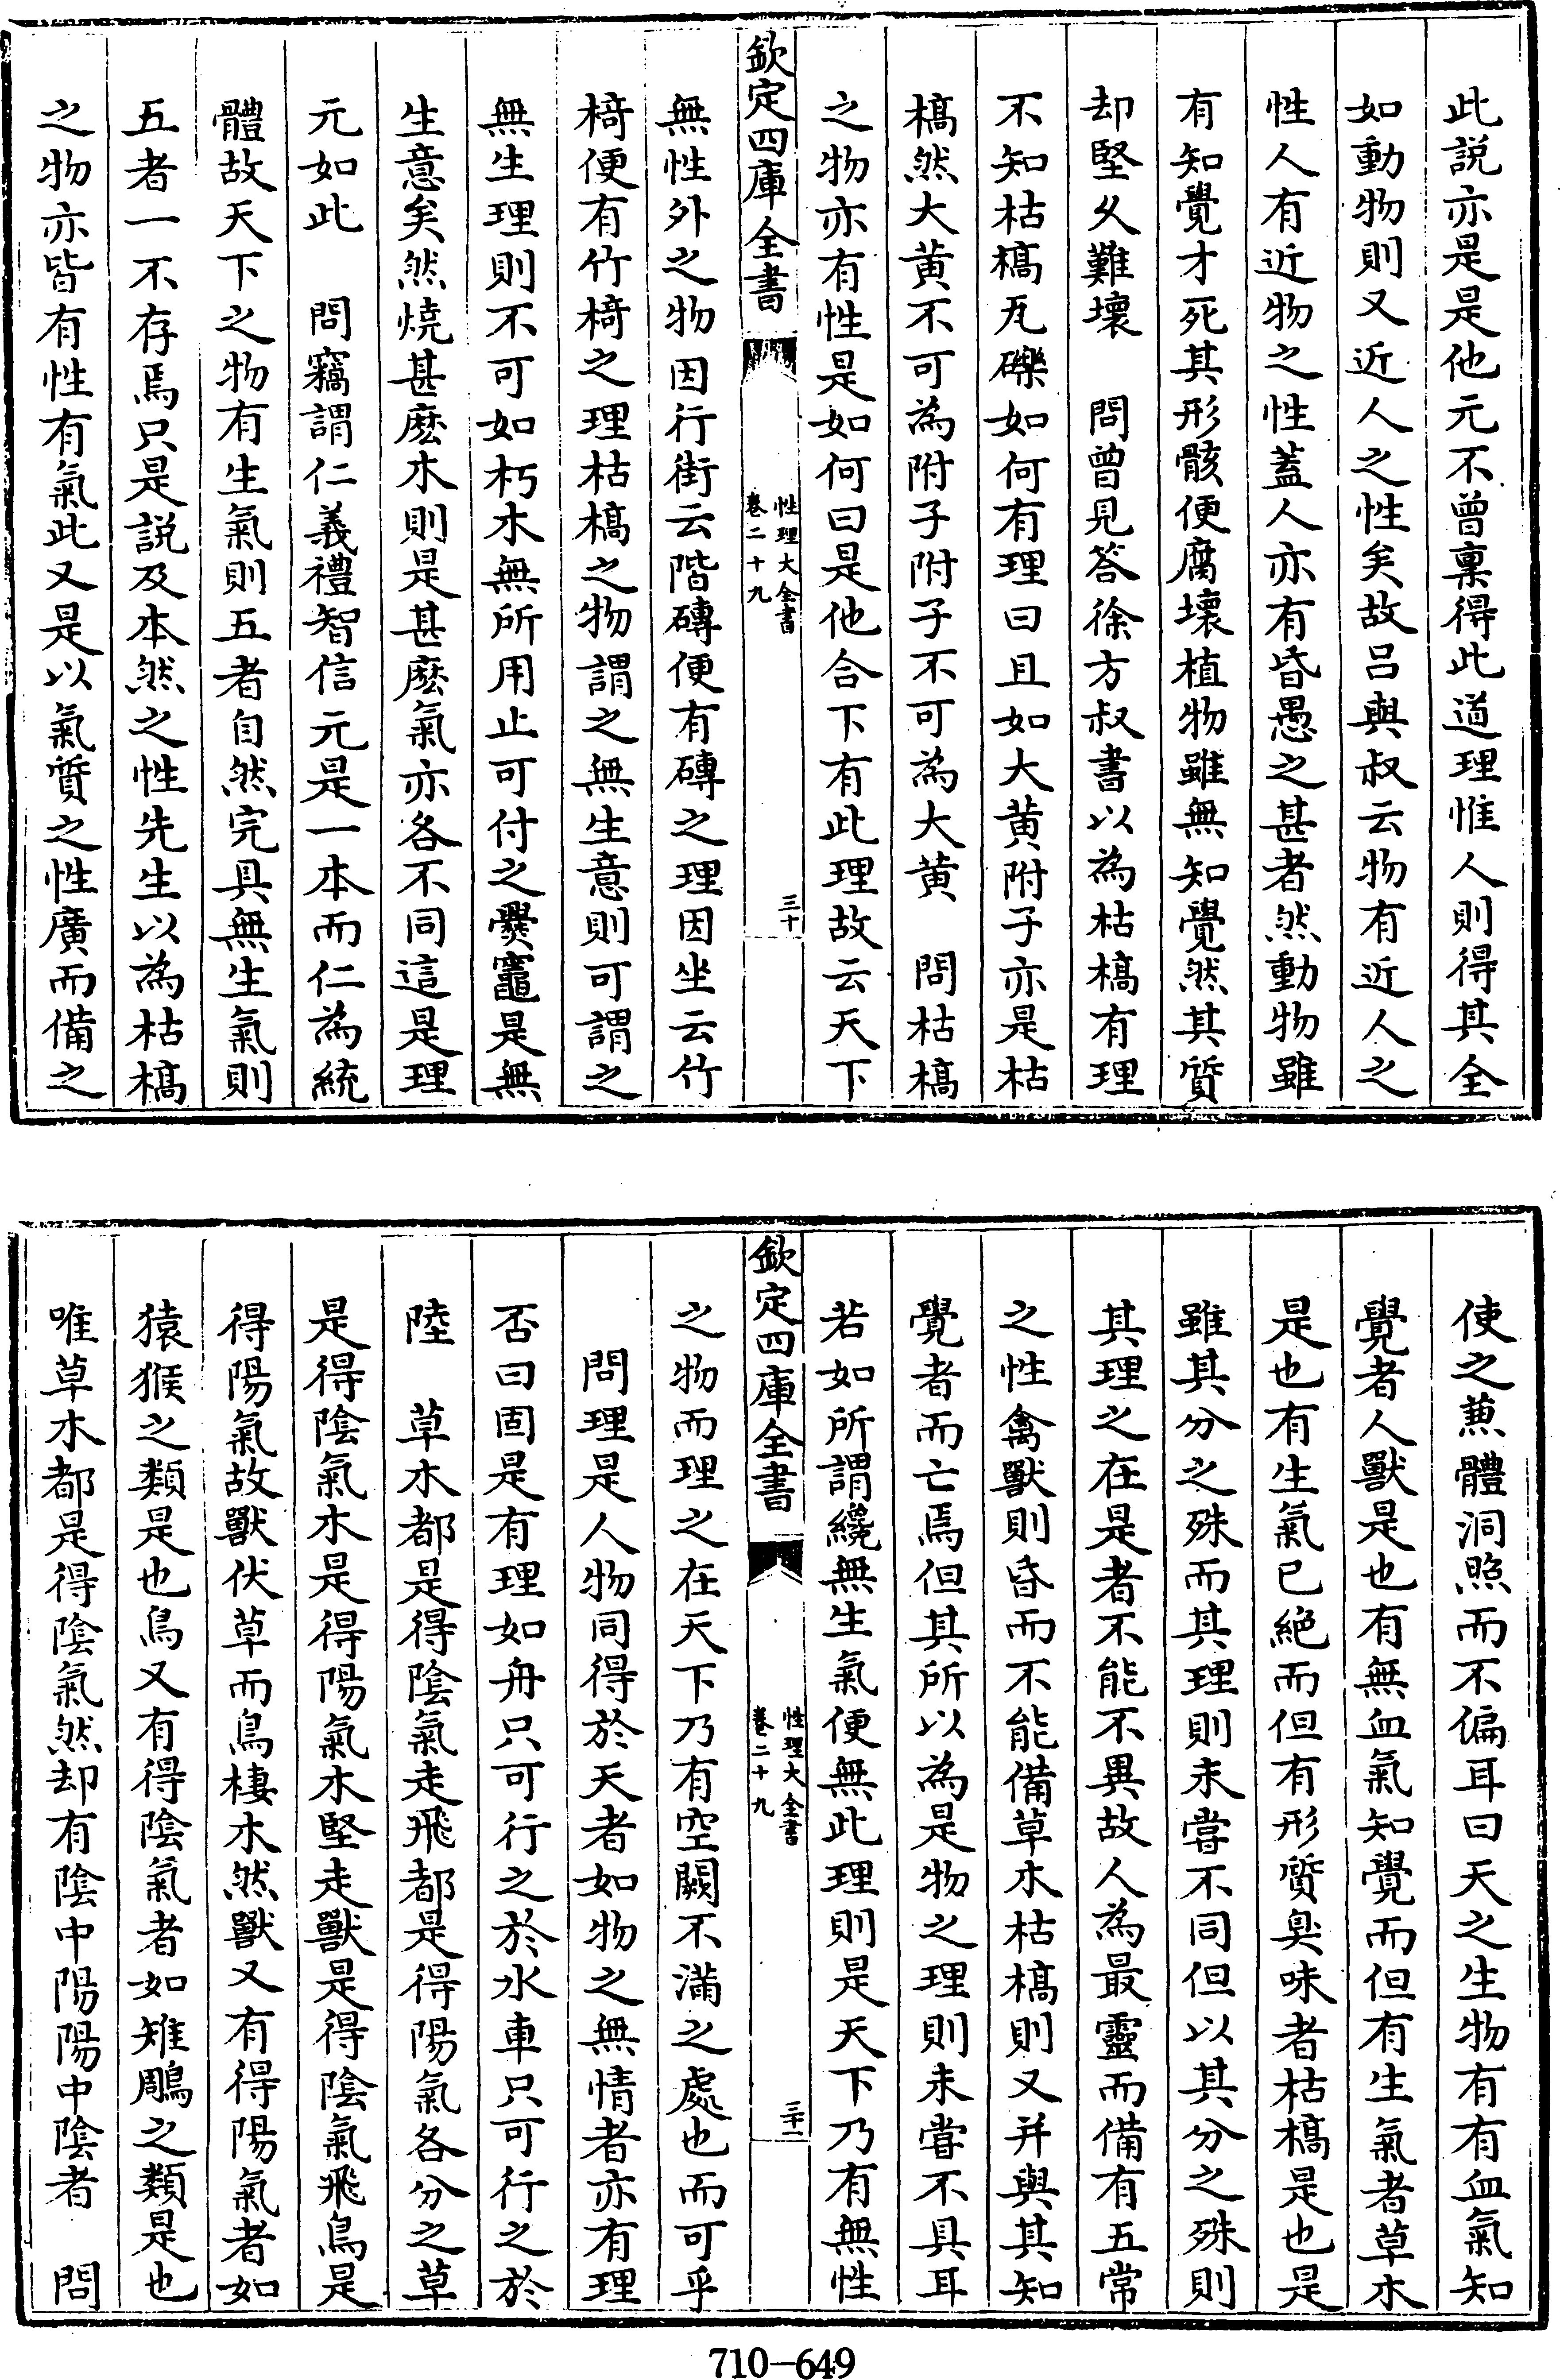 此説亦是是他元不曾稟得此道理惟人則得其全
如動物則又近人之性矣故吕與叔云物有近人之
性人有近物之性蓋人亦有昏愚之甚者然動物雖
有知覺才死其形骸便腐壞植物雖無知覺然其質
却堅久難壞　問曾見答徐方叔書以為枯槁有理
不知枯槁瓦礫如何有理曰且如大黄附子亦是枯
槁然大黄不可為附子附子不可為大黄　問枯槁
之物亦有性是如何曰是他合下有此理故云天下
欽定四庫全書
性理大全書
卷二十九
三十
無性外之物因行街云階磚便有磚之理因坐云竹
椅便有竹椅之理枯槁之物謂之無生意則可謂之
無生理則不可如朽木無所用止可付之爨竈是無
生意矣然燒甚麽木則是甚麽氣亦各不同這是理
元如此　問竊謂仁義禮智信元是一本而仁為統
體故天下之物有生氣則五者自然完具無生氣則
五者一不存焉只是説及本然之性先生以為枯槁
之物亦皆有性有氣此又是以氣質之性廣而備之
使之蕙體洞照而不偏耳曰天之生物有有血氣知
覺者人獸是也有無血氣知覺而但有生氣者草木
是也有生氣已絶而但有形質臭味者枯槁是也是
雖其分之殊而其理則未嘗不同但以其分之殊則
其理之在是者不能不異故人為最靈而備有五常
之性禽獸則昏而不能備草木枯槁則又并與其知
覺者而亡焉但其所以為是物之理則未嘗不具耳
若如所謂纔無生氣便無此理則是天下乃有無性
欽定四庫全書
性理大全書
卷二十九
三十一
之物而理之在天下乃有空闕不滿之處也而可乎
問理是人物同得於天者如物之無情者亦有理
否曰固是有理如舟只可行之於水車只可行之於
陸　草木都是得陰氣走飛都是得陽氣各分之草
是得陰氣木是得陽氣木堅走獸是得陰氣飛鳥是
得陽氣故獸伏草而鳥棲木然獸又有得陽氣者如
猿猴之類是也鳥又有得陰氣者如雉鵰之類是也
唯草木都是得陰氣然却有陰中陽陽中陰者　問
710-649